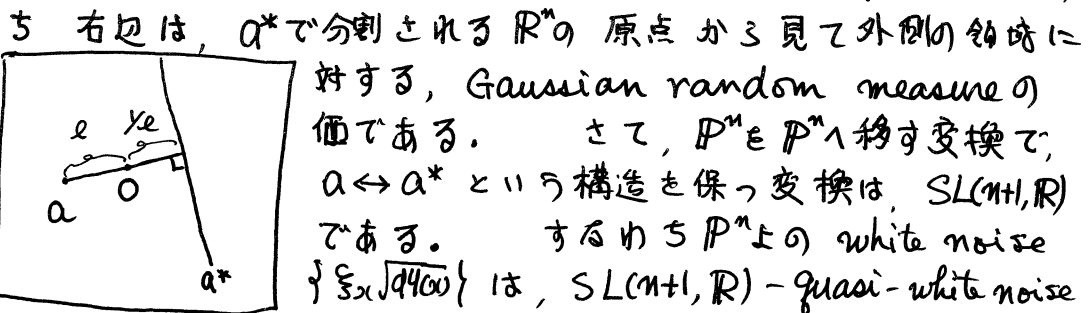 ち 右辺は, a*で分割されるR^nの 原点から見て外側の領域に
対する, Gaussian random measureの
値である. さて, P^nをP^nへ移す変換で,
a↔a* という構造を保つ変換は, SL(n+1, R)
である. すなわちP^n上の white noise
{ξx√dψ(x)} は, SL(n+1, R) - quasi - white noise
l 1/l
a O
a*